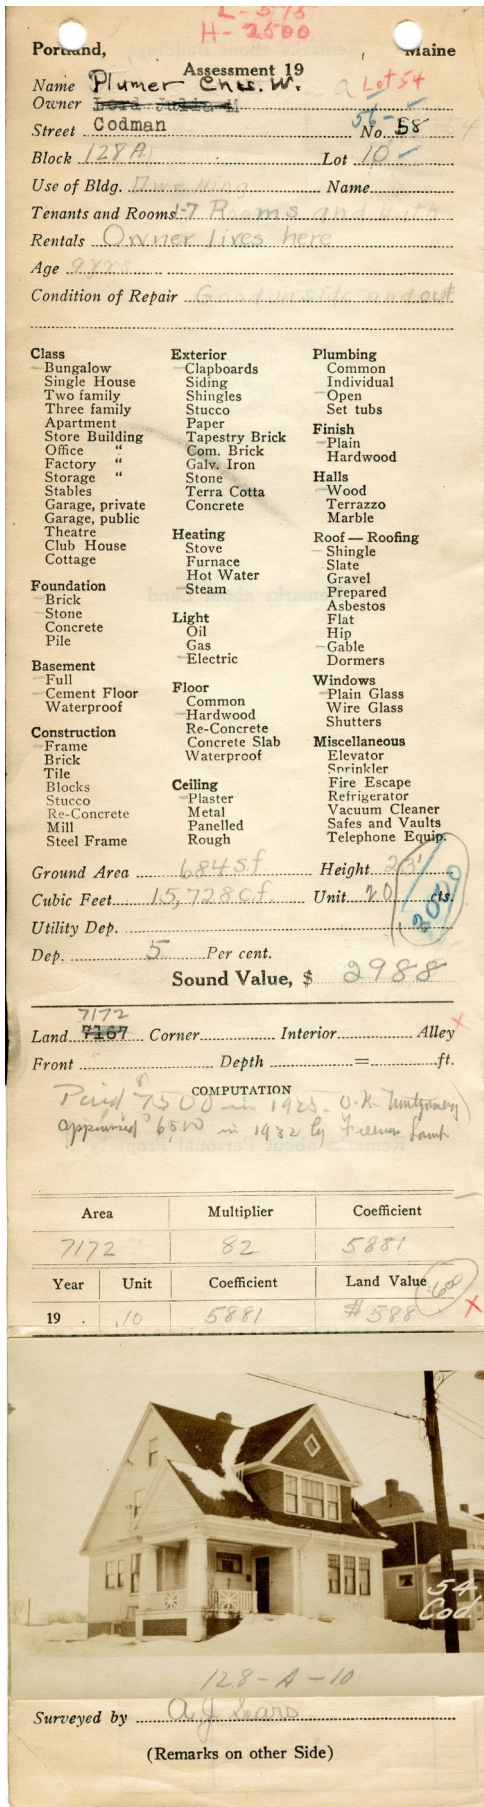 L-575
H-2500
Portland, Maine
Assessment 19
Name Plumer Chas. W. Lot 54
Owner Lord Julia M
56-
Street Codman No. 58 54
Block 128A Lot 10
Use of Bldg. Dwelling Name
Tenants and Rooms 1-7 Rooms and Bath
Rentals Owner lives here
Age 9yrs
Condition of Repair Good inside and out
Class
Bungalow
Single House
Two family
Three family
Apartment
Store Building
Office "
Factory "
Storage "
Stables
Garage, private
Garage, public
Theatre
Club House
Cottage
Foundation
Brick
Stone
Concrete
Pile
Basement
Full
Cement Floor
Waterproof
Construction
Frame
Brick
Tile
Blocks
Stucco
Re-Concrete
Mill
Steel Frame
Exterior
Clapboards
Siding
Shingles
Stucco
Paper
Tapestry Brick
Com. Brick
Galv. Iron
Stone
Terra Cotta
Concrete
Heating
Stove
Furnace
Hot Water
Steam
Light
Oil
Gas
Electric
Floor
Common
Hardwood
Re-Concrete
Concrete Slab
Waterproof
Ceiling
Plaster
Metal
Panelled
Rough
Plumbing
Common
Individual
Open
Set tubs
Finish
Plain
Hardwood
Halls
Wood
Terrazzo
Marble
Roof — Roofing
Shingle
Slate
Gravel
Prepared
Asbestos
Flat
Hip
Gable
Dormers
Windows
Plain Glass
Wire Glass
Shutters
Miscellaneous
Elevator
Sprinkler
Fire Escape
Refrigerator
Vacuum Cleaner
Safes and Vaults
Telephone Equip.
Ground Area 684 s.f. Height 23'
Cubic Feet 15,728 c.f. Unit 20 cts.
Utility Dep.
Dep. 5 Per cent.
Sound Value, $ 2988
7172
Land 7167 Corner Interior Alley X
Front Depth = ft.
COMPUTATION
Paid $7500 in 1925- O.K. Montgomery
appraised $6500 in 1932 by
Area Multiplier Coefficient
7172 82 5881
Year Unit Coefficient Land Value 600
19 . .10 5881 $588 X
54
Cod
128-A-10
Surveyed by A J Sears
(Remarks on other Side)